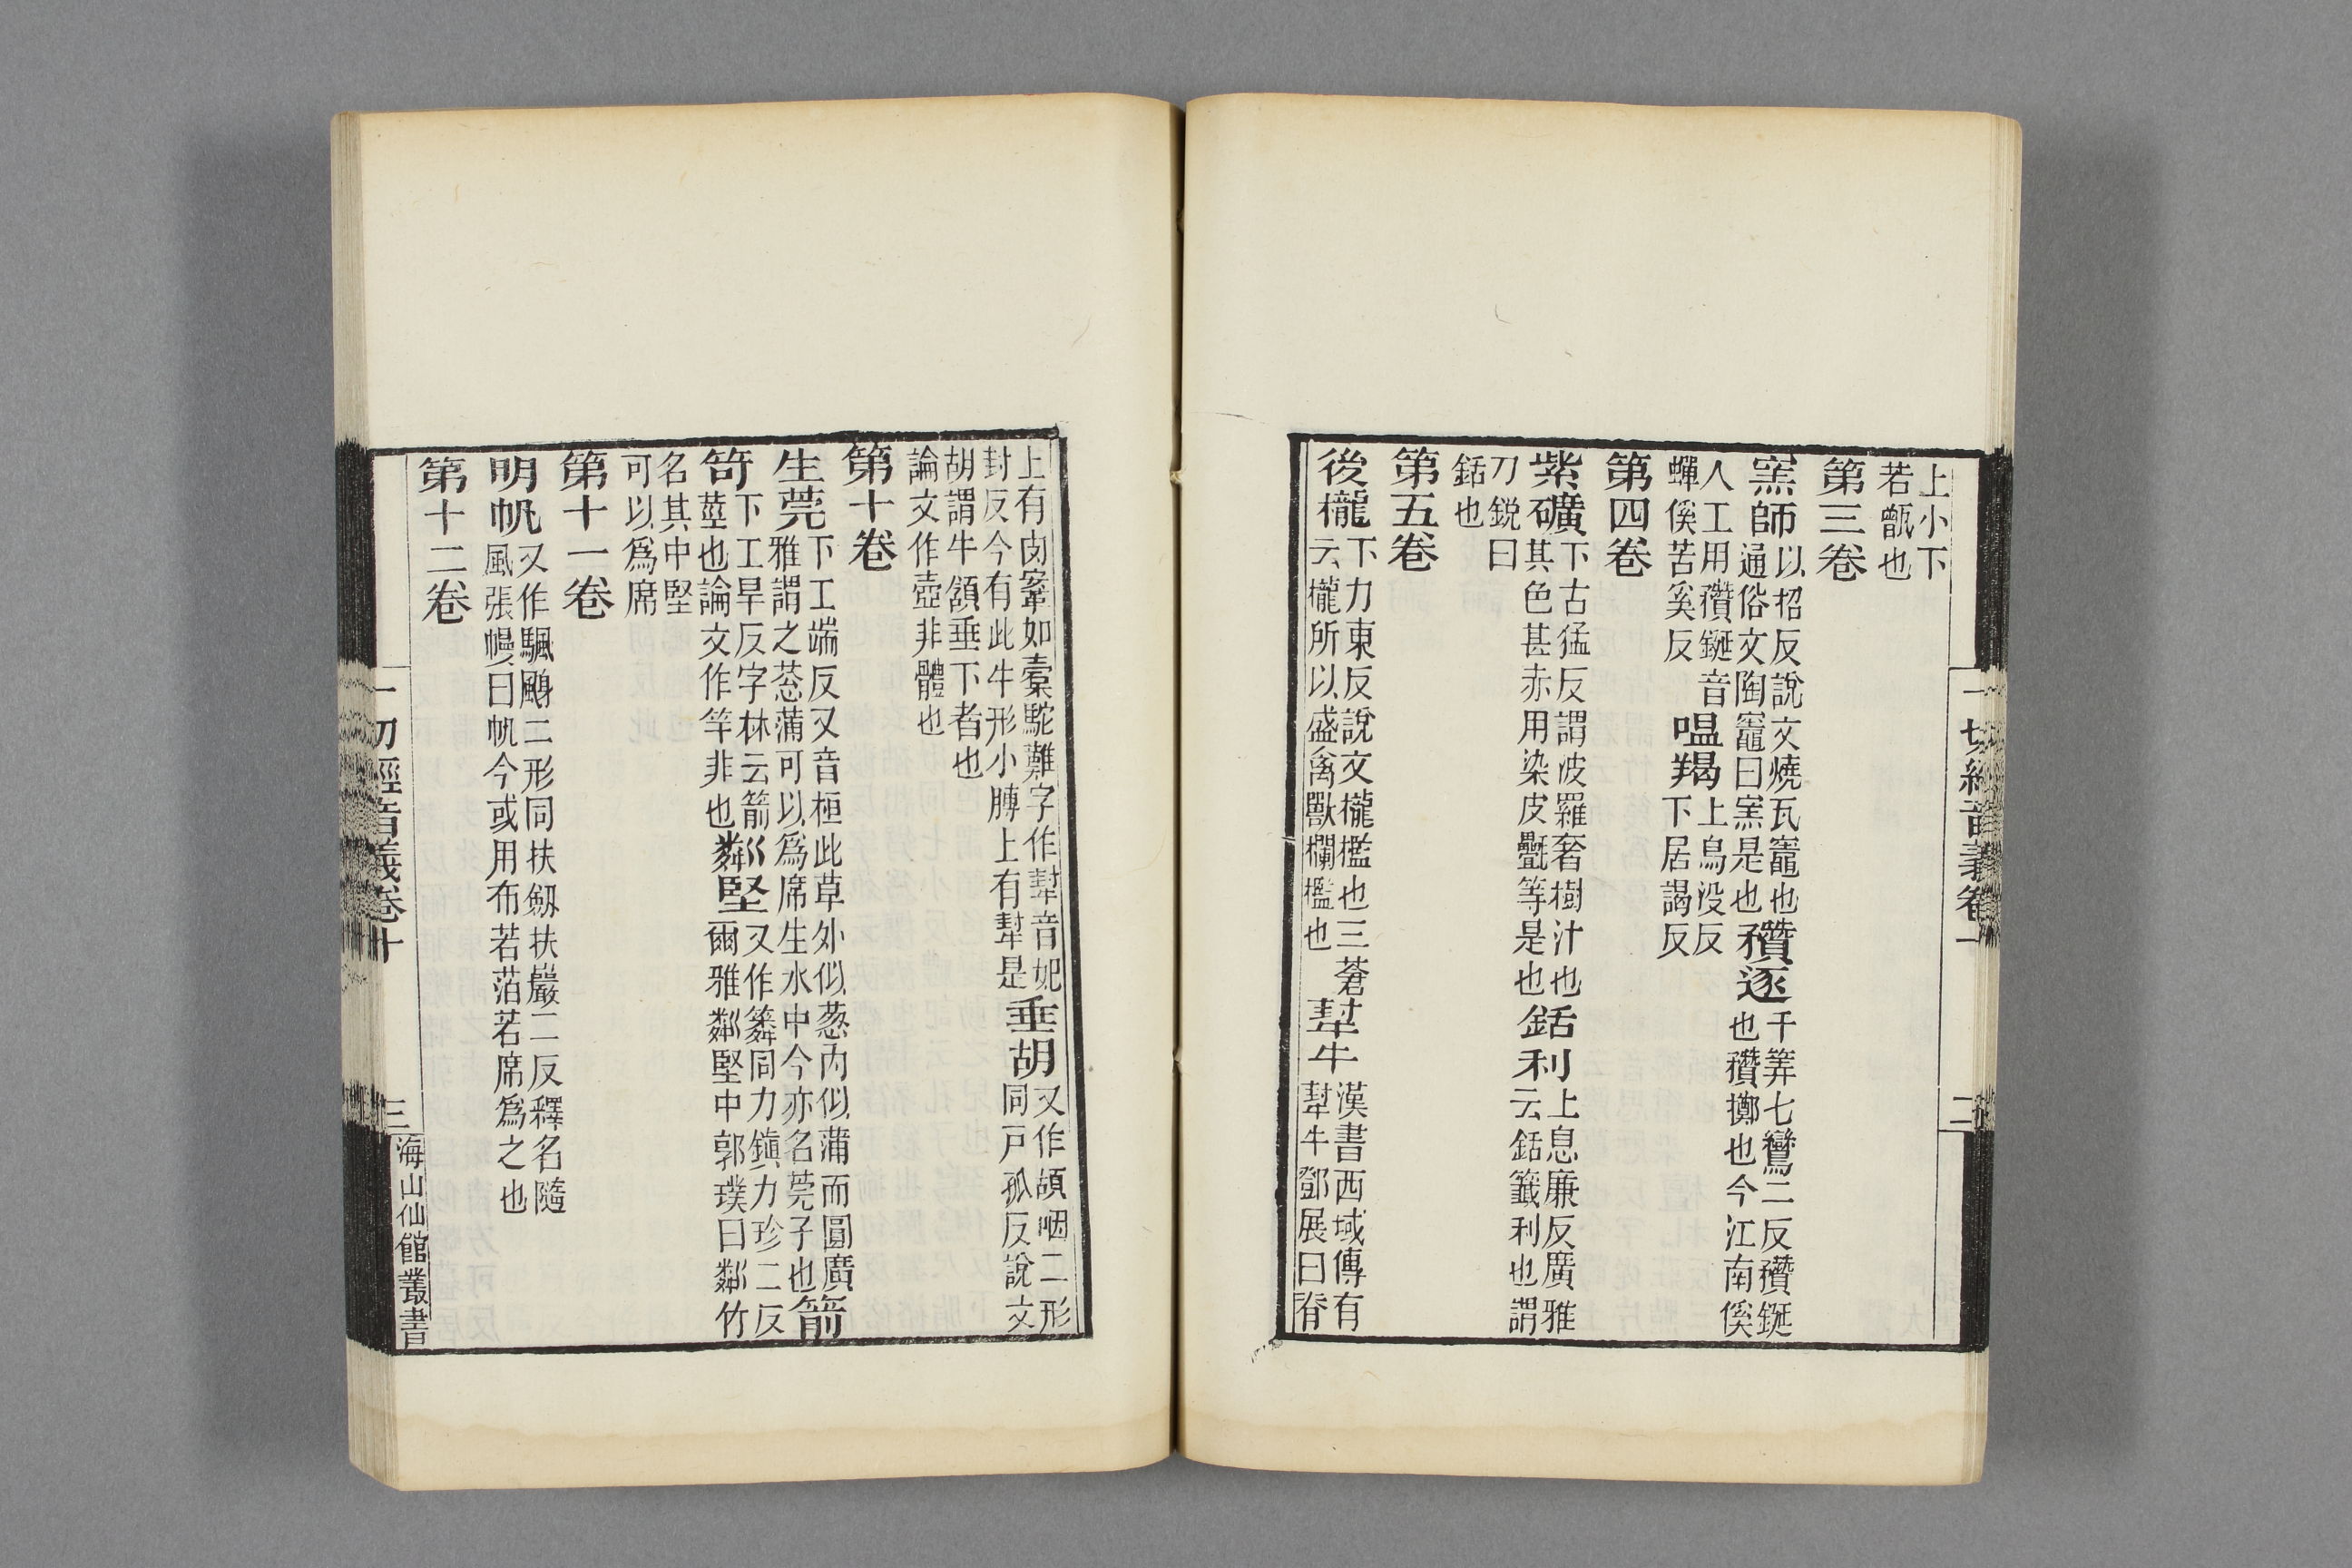 上小下
若甑也
第三卷
窯師以招反說文燒瓦竈也
通俗文陶竈曰窯是也穳逐千筭七鸞二反穳鋋
也穳擲也今江南傒
人工用穳鋋音
蟬傒苦奚反嗢羯上烏没反
下居謁反
第四卷
紫礦下古猛反謂波羅奢樹汁也
其色甚赤用染皮㲲等是也銛利上息廉反廣雅
云銛籤利也謂
刀銳曰
銛也
第五卷
後櫳下力東反說文櫳檻也三蒼
云櫳所以盛禽獸欄檻也犎牛漢書西域傳有
犎牛鄧展曰脊
一切經音義卷十
二
上有肉鞌如槖駝難字作犎音妃
封反今有此牛形小髆上有犎是垂胡又作頡咽二形
同戸孤反說文
胡謂牛頷垂下者也
論文作壺非體也
第十卷
生莞下工端反又音桓此草外似葱內似蒲而圓廣
雅謂之葱蒲可以爲席生水中今亦名莞子也箭
笴下工旱反字林云箭
莖也論文作竿非也鄰堅又作簶同力鎭力珍二反
爾雅鄰堅中郭璞曰鄰竹
名其中堅
可以爲席
第十一卷
明帆又作颿䬙二形同扶劔扶巖二反釋名隨
風張幔曰帆今或用布若萡若席爲之也
第十二卷
一切經音義卷十
三
海山仙館叢書